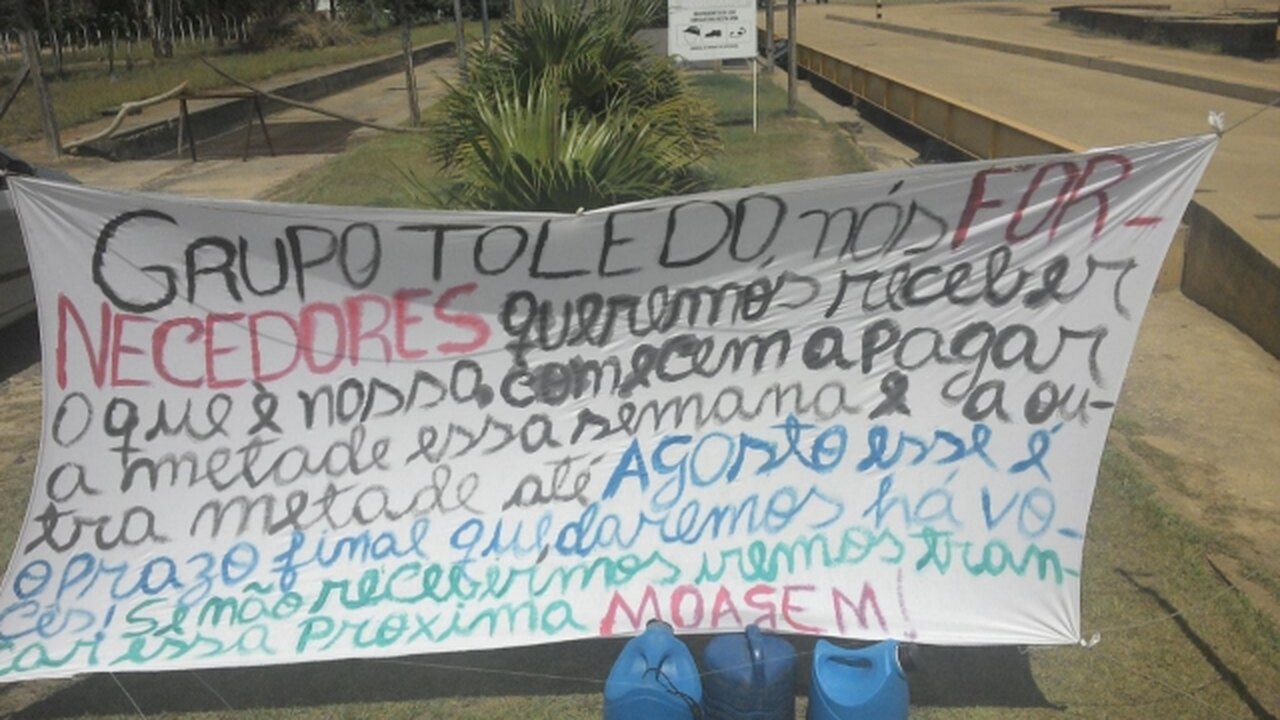 GRUPO TOLEDO, nós FOR-
NECEDORES queremos receber
o que è nosso, comecem a pagar
a metade essa semana e a ou-
tra metade até AGOSTO esse é
o prazo final que daremos há vo-
cês! Se não recebermos iremos tran-
car essa proxima MOAGEM!